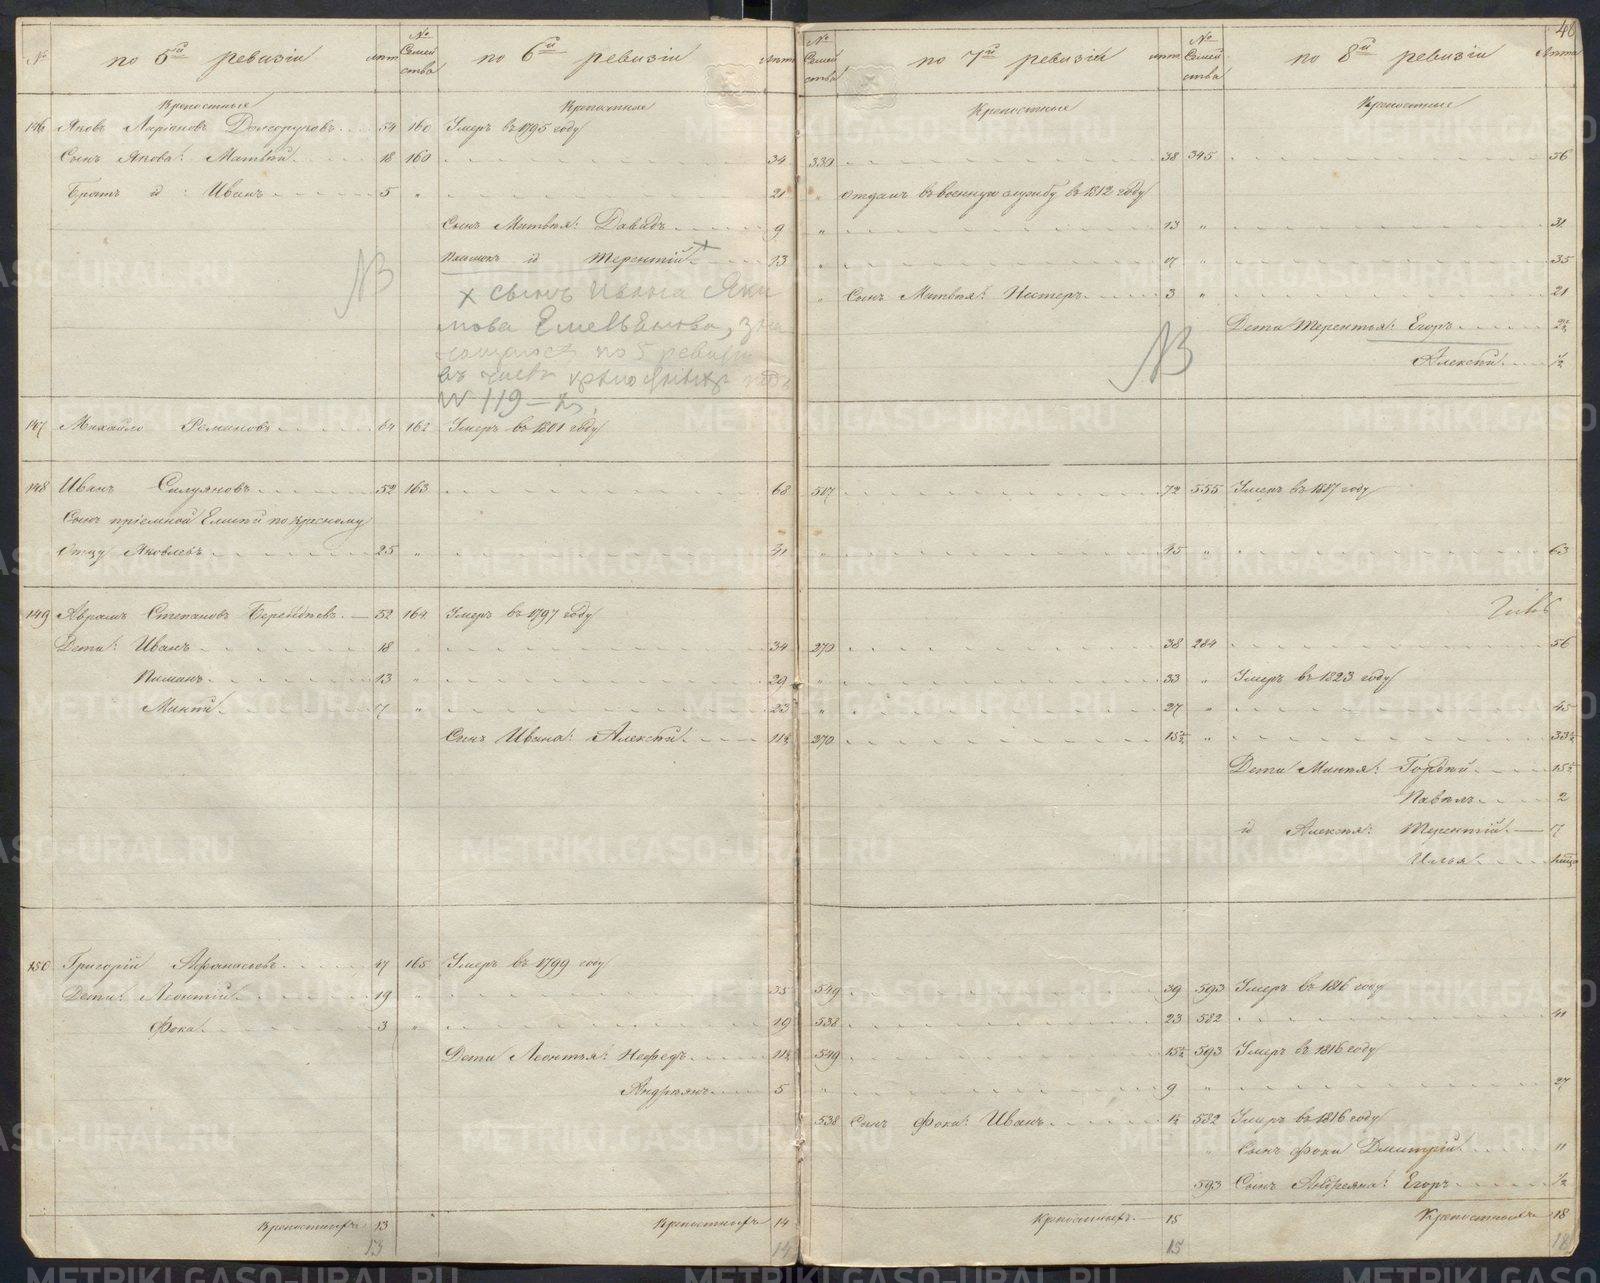 40
№ по 5й ревизiи лѣта № Семейства по 6й ревизiи лѣта № Семейства по 7й ревизiи лѣта № Семейства по 8й ревизiи лѣта
Крѣпостные Крѣпостные Крѣпостные Крѣпостные
146 Яковъ Ларiоновъ 54 160 Умеръ въ 1795 году
Сынъ Якова: Матвѣй 18 160 34 330 38 345 56
Братъ id: Иванъ 5 " 21 " отданъ въ военную службу въ 1812 году
Сынъ Матвѣя: Давыдъ 9 " 13 " 31
Племянъ id Терентiй 13 " 17 " 35
NB х сынъ Ивана " Сынъ Матвѣя: Нестеръ 3 " 21
Емельянова, Дети Терентья: Егоръ
по 5 ревизiи NB Алексѣй 1/2
въ числѣ
N 119
147 Михайло Романовъ 64 162 Умеръ въ 1801 году
148 Иванъ Силуяновъ 52 163 68 507 72 555 Умеръ въ 1817 году
Сынъ прiемной по крестному
отцу Яковлевъ 25 " 41 " 45 " 63
149 Аврамъ Степановъ 52 164 Умеръ въ 1797 году
Дети: Иванъ 18 34 270 38 284 56
Пиманъ 13 " 29 " 33 " Умеръ въ 1823 году
Минѣй 7 " 23 " 27 " 45
Сынъ Ивана: Алексѣй 11½ 270 15½ " 33½
Дети Минѣя: Гордѣй 15½
Павелъ 2
id Алексѣя: Терентiй 7
Илья
150 Григорiй Афанасьевъ 47 165 Умеръ въ 1799 году
Дети: Леонтiй 19 " 35 549 39 593 Умеръ въ 1816 году
Фока 3 " 19 538 23 582 41
Дети Леонтья: Нефедъ 11½ 549 15½ 593 Умеръ въ 1816 году
Андреянъ 5 " 9 " 27
538 Сынъ Фоки: Иванъ 582 Умеръ въ 1816 году
" Сынъ Фоки Дмитрiй 11
593 Сынъ Андреяна: Егоръ 1/2
Крѣпостныхъ 13 Крѣпостныхъ 14 Крѣпостныхъ 15 Крѣпостныхъ 18
13 14 15 18
METRIKI.GASO-URAL.RU